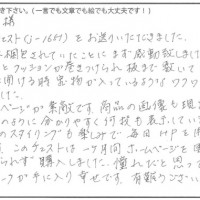 き下さい。(一言でも文章でも絵でも大丈夫です!)
様
スト(J-1665)をお送りいただきました。
梱包されていたことにまず感動致しました
クッションが巻きつけられ板まで敷いて
開ける時宝物が入っているようなワクワ
した。
ページが素敵です。商品の画像も現
のように分かりやすく何枚も表示してい
のスタイリングも楽しみで毎日HPを開
。このチェストは一ヶ月前ホームページを開
られず購入しました。憧れだと思って
ークが手に入り幸せです。有難うござい